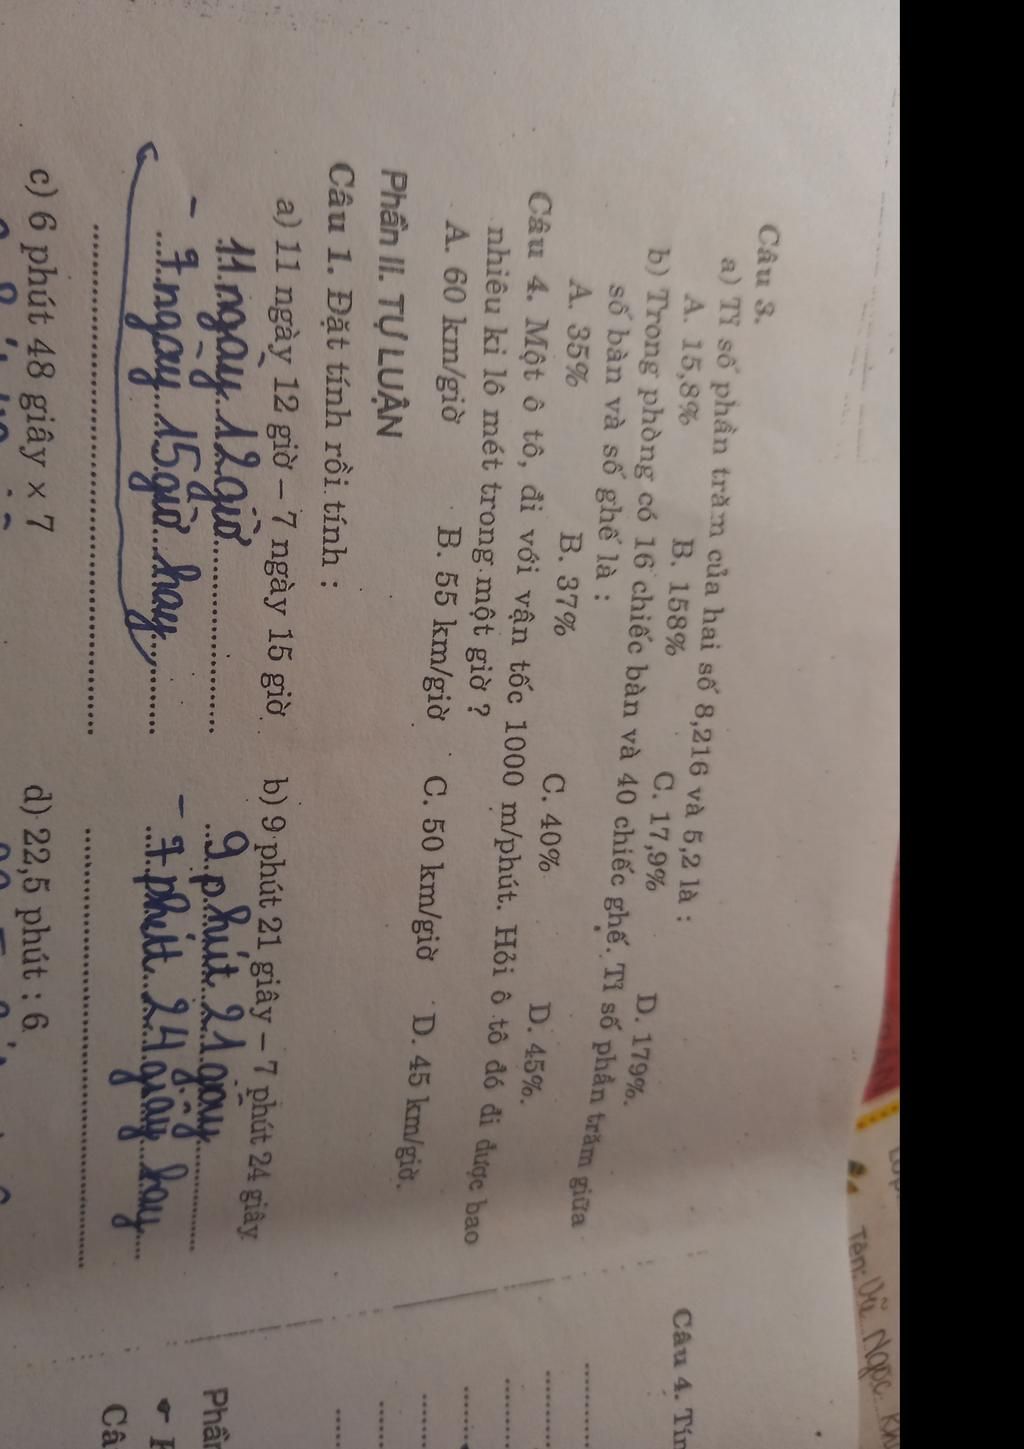 Câu 3.
a) Tỉ số phần trăm của hai số 8,216 và 5,2 là :
A. 15,8% B. 158% C. 17,9% D. 179%.
b) Trong phòng có 16 chiếc bàn và 40 chiếc ghế. Tỉ số phần trăm giữa
số bàn và số ghế là :
A. 35% B. 37% C. 40% D. 45%.
Câu 4. Một ô tô, đi với vận tốc 1000 m/phút. Hỏi ô tô đó đi được bao
nhiêu ki lô mét trong một giờ ?
A. 60 km/giờ B. 55 km/giờ C. 50 km/giờ D. 45 km/giờ.
Phần II. TỰ LUẬN
Câu 1. Đặt tính rồi tính :
a) 11 ngày 12 giờ – 7 ngày 15 giờ b) 9 phút 21 giây – 7 phút 24 giây
11 ngày 12 giờ 9 phút 21 giây
- 7 ngày 15 giờ hay - 7 phút 24 giây hay
c) 6 phút 48 giây × 7 d) 22,5 phút : 6
Tên: Vũ Ngọc
Câu 4.